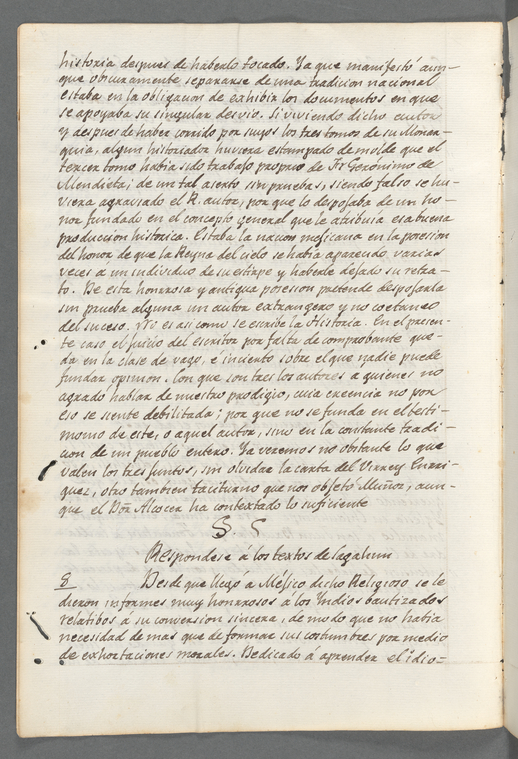 historia despues de haberlo tocado. Ya que manifestó aun-
que obscuramente separarse de una tradicion nacional
estaba en la obligacion de exhibir los documentos en que
se apoyaba su singular desvio. Si viviendo dicho autor
y despues de haber corrido por suyos los tres tomos de su Monar-
quia, algun historiador huviera estampado de molde que el
tercer tomo habia sido trabajo proprio de Fr Gerónimo de
Mendieta; de un tal aserto sin pruebas, siendo falso se hu-
viera agraviado el R. autor, por que lo despojaba de un ho-
nor fundado en el concepto general que le atribuía esa buena
produccion historica. Estaba la nacion mejicana en la posesion
del honor de que la Reyna del cielo se habia aparecido varias
veces a un individuo de su estirpe y haberle dejado su retra-
to. De esta honrosa y antigua posesion pretende despojarla
sin prueba alguna un autor extrangero y no coetaneo
del suceso. No es asi como se escribe la Historia. En el presen-
te caso el juicio del Escritor por falta de comprobante que-
da en la clase de vago, é incierto sobre el que nadie puede
fundar opinion. Con que son tres los autores a quienes no
agradó hablar de nuestro prodigio, cuia creencia no por
eso se siente debilitada; por que no se funda en el testi-
monio de este, o aquel autor, sino en la constante tradi-
cion de un pueblo entero. Ya veremos no obstante lo que
valen los tres juntos, sin olvidar la carta del Virrey Enrri-
quez, otro tambien taciturno que nos objetó Muñoz, aun-
que el Dor Alcocer ha contextado lo suficiente
§. 5
Respondese á los textos de Sagahun
8 Desde que llegó a Méjico dicho Religioso se le
dieron informes muy honrrosos á los Indios bautizados
relatibos á su conversion sincera, de modo que no habia
necesidad de mas que de formar sus costumbres por medio
de exhortaciones morales. Dedicado á aprender el idio-